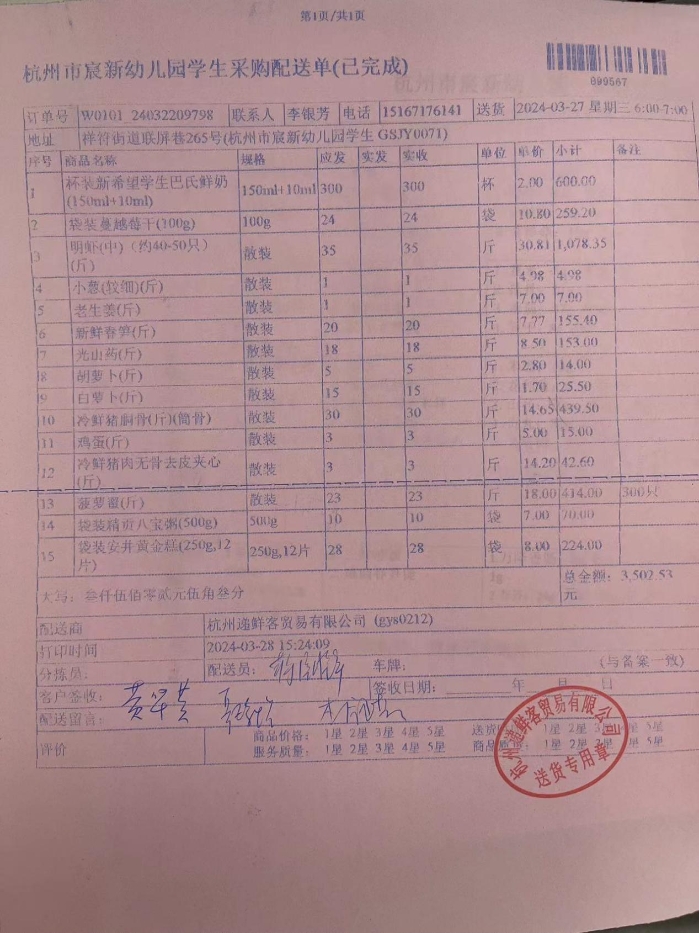 第1页/共1页
杭州市宸新幼儿园学生采购配送单(已完成)
899567
订单号 W0101 24032209798 联系人 李银芳 电话 15167176141 送货 2024-03-27 星期三 6:00-7:00
地址 祥符街道联屏巷265号(杭州市宸新幼儿园学生 GSJY0071)
序号 商品名称 规格 应发 实发 实收 单位 单价 小计 备注
1 杯装新希望学生巴氏鲜奶(150ml+10ml) 150ml+10ml 300 300 杯 2.00 600.00
2 袋装蔓越莓干(100g) 100g 24 24 袋 10.80 259.20
3 明虾(中)（约40-50只）(斤) 散装 35 35 斤 30.81 1,078.35
4 小葱(较细)(斤) 散装 1 1 斤 4.98 4.98
5 老生姜(斤) 散装 1 1 斤 7.00 7.00
6 新鲜春笋(斤) 散装 20 20 斤 7.77 155.40
7 光山药(斤) 散装 18 18 斤 8.50 153.00
8 胡萝卜(斤) 散装 5 5 斤 2.80 14.00
9 白萝卜(斤) 散装 15 15 斤 1.70 25.50
10 冷鲜猪胴骨(斤)(筒骨) 散装 30 30 斤 14.65 439.50
11 鸡蛋(斤) 散装 3 3 斤 5.00 15.00
12 冷鲜猪肉无骨去皮夹心(斤) 散装 3 3 斤 14.20 42.60
13 菠萝蜜(斤) 散装 23 23 斤 18.00 414.00 300只
14 袋装精贡八宝粥(500g) 500g 10 10 袋 7.00 70.00
15 袋装安井黄金糕(250g,12片) 250g,12片 28 28 袋 8.00 224.00
大写：叁仟伍佰零贰元伍角叁分 总金额：3,502.53元
配送商 杭州递鲜客贸易有限公司 (gys0212)
打印时间 2024-03-28 15:24:09
分拣员： 配送员： 车牌： (与备案一致)
客户签收： 签收日期： 年 月 日
配送留言：
评价 商品价格： 1星 2星 3星 4星 5星 送货 1星 2星 3星 4星 5星
服务质量： 1星 2星 3星 4星 5星 商品 1星 2星 3星 4星 5星
杭州递鲜客贸易有限公司
送货专用章